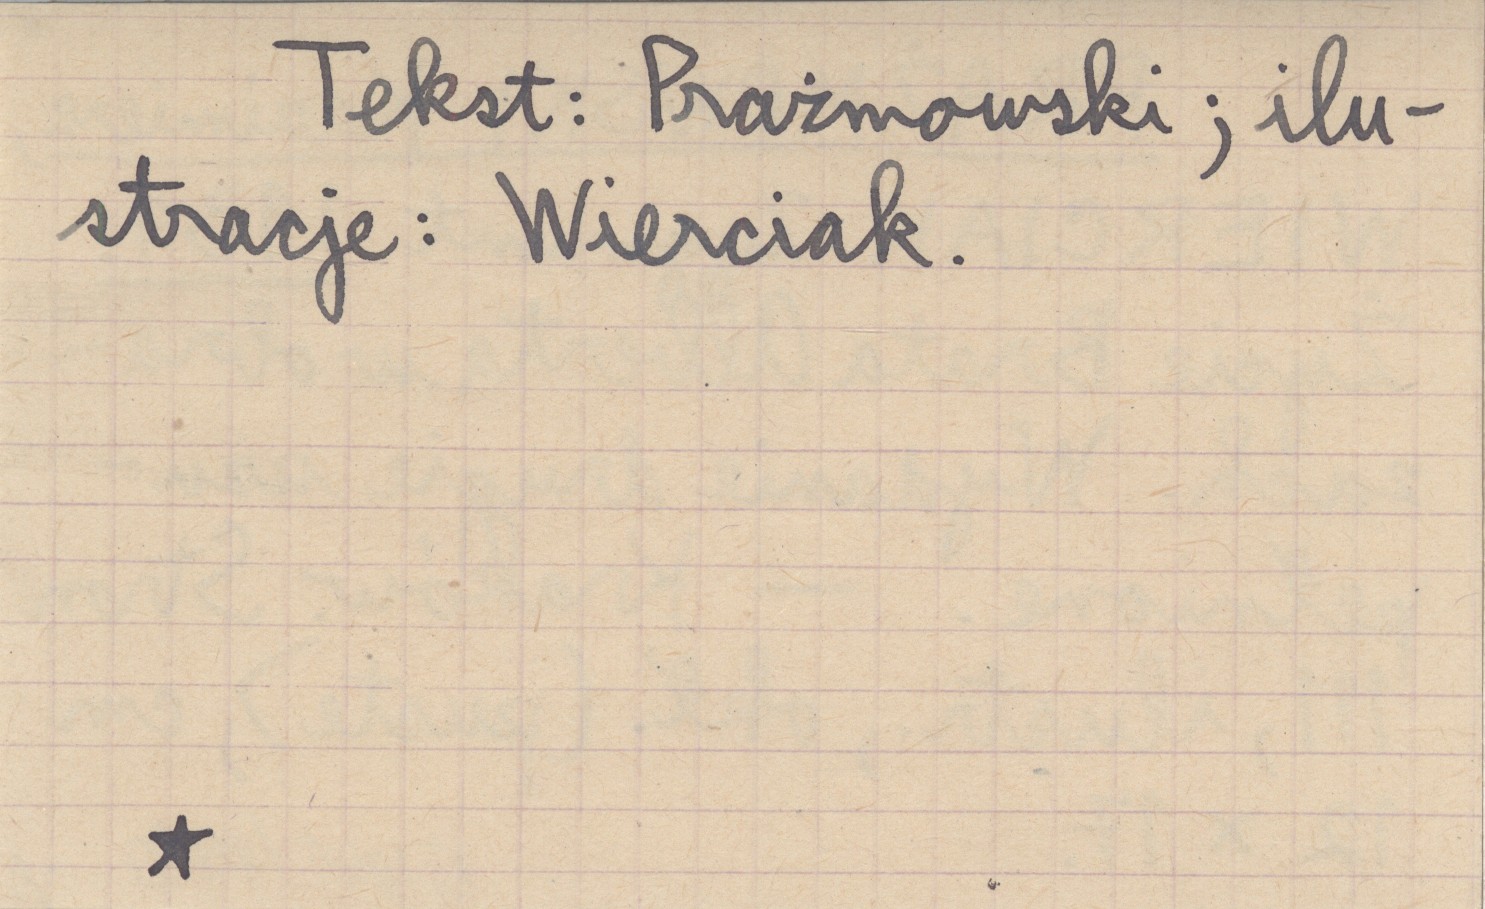 Tekst: Prażmowski; ilu-
stracje: Wierciak.